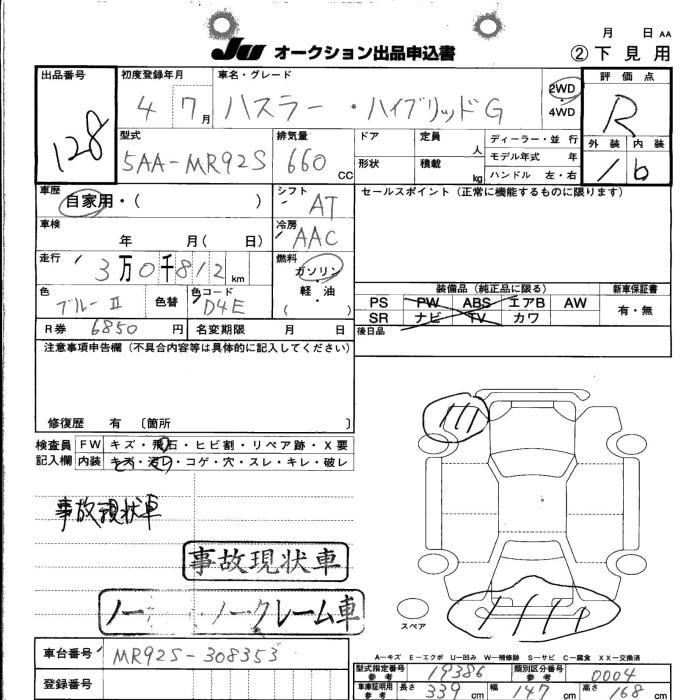 月 日 AA
JU オークション出品申込書 ②下見用
出品番号 128
初度登録年月 4 7月
車名・グレード ハスラー・ハイブリッドG
2WD・4WD
評価点 R
外装 内装
1 b
型式 5AA-MR92S
排気量 660 CC
ドア 定員 人
形状 積載 kg
ディーラー・並行
モデル年式 年
ハンドル 左・右
車歴 自家用・( )
シフト AT
セールスポイント(正常に機能するものに限ります)
車検 年 月( 日)
冷房 AAC
走行 3万0千812km
燃料 ガソリン・軽・油 ( )
色 ブルーⅡ 色替 色コード D4E
装備品(純正品に限る) 新車保証書
PS PW ABS エアB AW 有・無
SR ナビ TV カワ
R券 6850円 名変期限 月 日
後日品
注意事項申告欄(不具合内容等は具体的に記入してください)
修復歴 有 〔箇所 〕
検査員 FW キズ・飛石・ヒビ割・リペア跡・X要
記入欄 内装 キズ・汚レ・コゲ・穴・スレ・キレ・破レ
事故現状車
事故現状車
ノー ノークレーム車
スペア
A―キズ E―エクボ U―凹み W―補修跡 S―サビ C―腐食 XX―交換済
車台番号 MR92S-308353
型式指定番号 参考 19386 類別区分番号 参考 0004
登録番号
車庫証明用 参考 長さ 339cm 幅 147cm 高さ 168cm